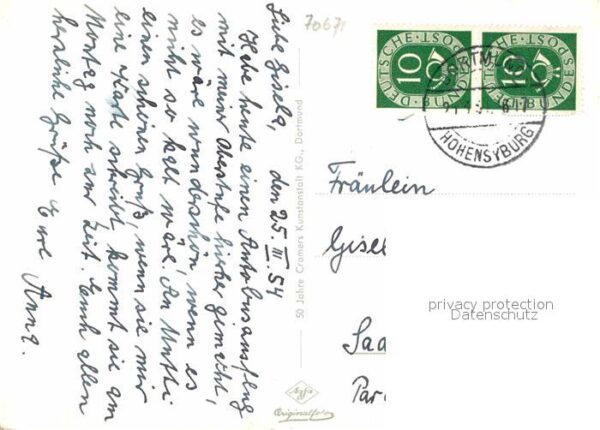 70671
Liebe Gisela,
den 25. III. 54
Habe heute einen Autobusausflug
mit meiner Oberstufe hierher gemacht,
es wäre wunderschön, wenn es
nicht so kalt wäre. An Mutti
einen schönen Gruß, wenn sie mir
eine Karte schreibt, kommt sie am
Montag noch zur Zeit. Euch allen
herzliche Grüße Eure
Anna.
50 Jahre Cramers Kunstanstalt KG., Dortmund
DEUTSCHE BUNDESPOST
10
DEUTSCHE BUNDESPOST
10
DORTMUND
HOHENSYBURG
Fräulein
Gisel
privacy protection
Datenschutz
Saa
Par
Agfa
Originalfoto